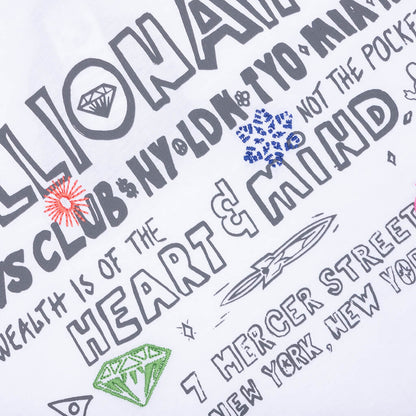 LLIONAI
YS CLUB NY LDN TYO MIA
WEALTH IS OF THE HEART & MIND.
NOT THE POCKET
7 MERCER STREET
NEW YORK, NEW YORK